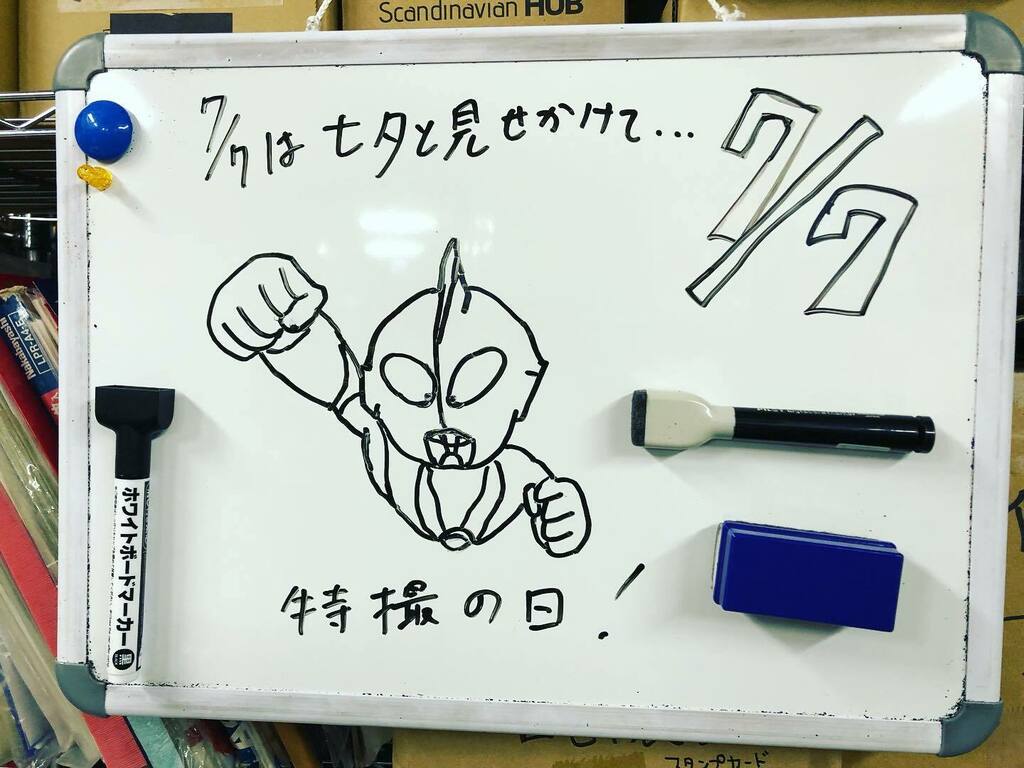 Scandinavian HUB
7/7は七夕と見せかけて...
7/7
特撮の日!
Nakabayashi
LPR-A4-E
ホワイトボードマーカー 黒
スタンプカード